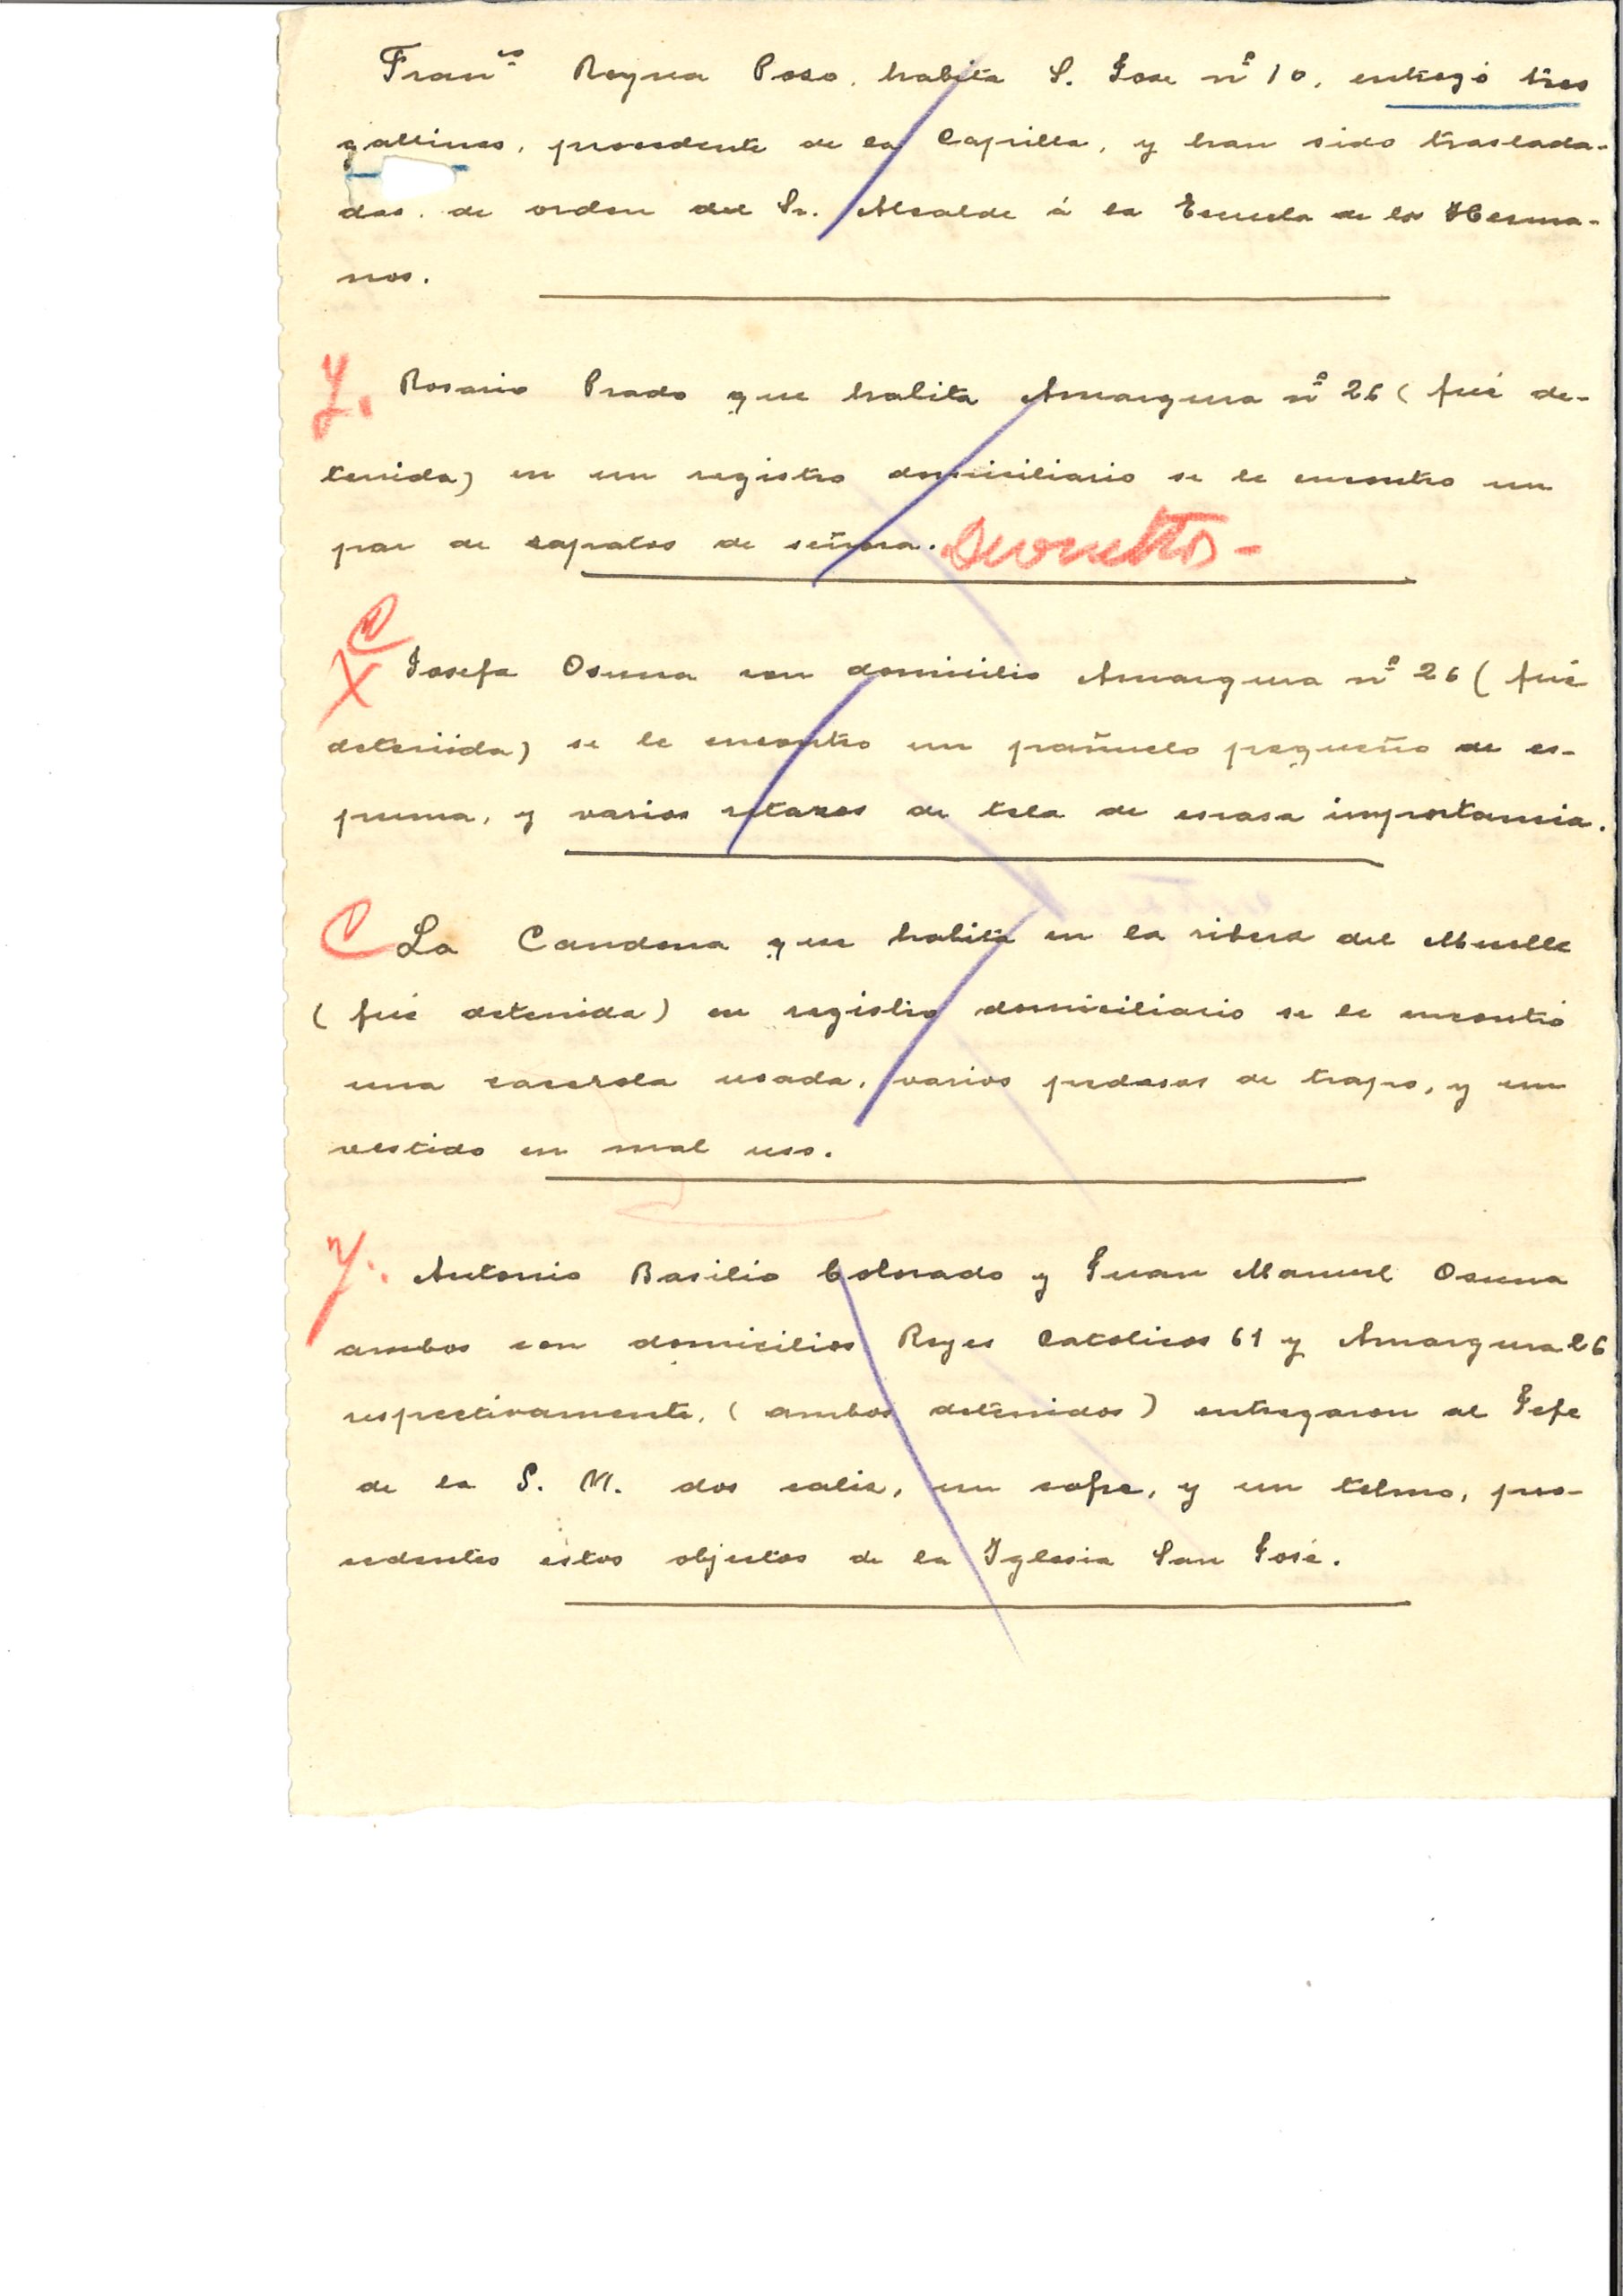 Fran.co Reyna Poso, habita S. Jose nº 10, entregó tres
gallinas, procedente de la Capilla, y han sido traslada-
das. de orden del Sr. Alcalde á la Escuela de los Herma-
nos.
Y. Rosario Prado que habita Amargura nº 26 ( fué de-
tenida) en un registro domiciliario se le encontro un
par de sapatos de señora. Devueltos -
X Josefa Osuna con domicilio Amargura nº 26 ( fué
detenida) se le encontro un pañuelo pequeño de es-
puma, y varios retazos de tela de escasa importancia.
C La Candona que habita en la ribera del Muelle
( fué detenida) en registro domiciliario se le encontró
una caserola usada, varios pedasos de trapo, y un
vestido en mal uso.
Y. Antonio Basilio Colorado y Juan Manuel Osuna
ambos con domicilios Reyes Catolicos 61 y Amargura 26
respectivamente, ( ambos detenidos ) entregaron al Jefe
de la G. M. dos calis, un cofre, y un telmo, pro-
cedentes estos objectos de la Iglesia San José.